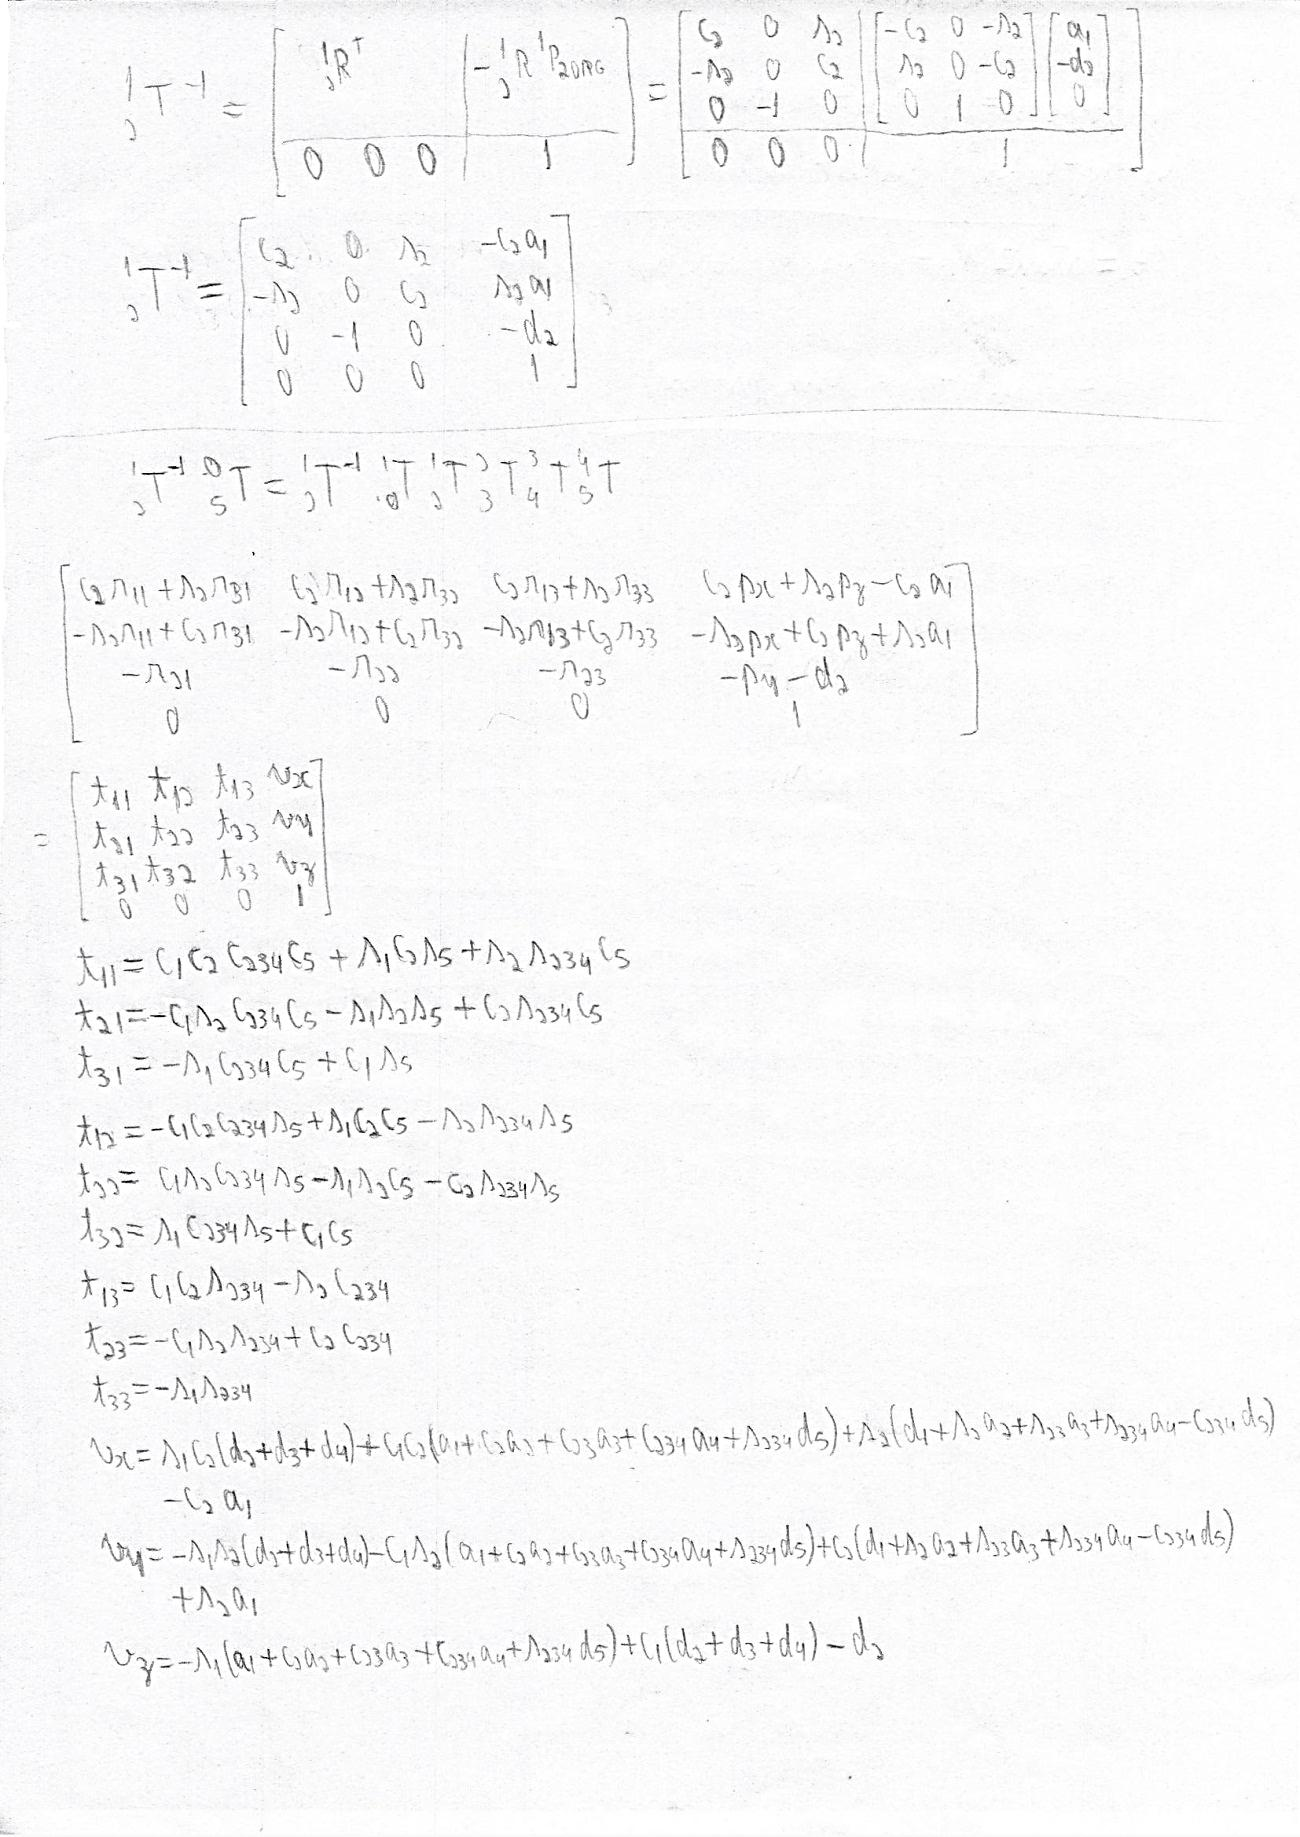 ¹₂T⁻¹ = [ ¹₂Rᵀ | -¹₂R ¹P₂ORG ; 0 0 0 | 1 ] = [ c₂ 0 s₂ | [ -c₂ 0 -s₂ ; s₂ 0 -c₂ ; 0 1 0 ] [ a₁ ; -d₂ ; 0 ] ; -s₂ 0 c₂ ; 0 -1 0 ; 0 0 0 | 1 ]
¹₂T⁻¹ = [ c₂ 0 s₂ -c₂a₁ ; -s₂ 0 c₂ s₂a₁ ; 0 -1 0 -d₂ ; 0 0 0 1 ]
¹₂T⁻¹ ⁰₅T = ¹₂T⁻¹ ¹₀T ¹₂T ²₃T ³₄T ⁴₅T
[ c₂r₁₁+s₂r₃₁ c₂r₁₂+s₂r₃₂ c₂r₁₃+s₂r₃₃ c₂px+s₂pz-c₂a₁
-s₂r₁₁+c₂r₃₁ -s₂r₁₂+c₂r₃₂ -s₂r₁₃+c₂r₃₃ -s₂px+c₂pz+s₂a₁
-r₂₁ -r₂₂ -r₂₃ -py-d₂
0 0 0 1 ]
= [ t₁₁ t₁₂ t₁₃ vx
t₂₁ t₂₂ t₂₃ vy
t₃₁ t₃₂ t₃₃ vz
0 0 0 1 ]
t₁₁ = c₁c₂c₂₃₄c₅ + s₁c₂s₅ + s₂s₂₃₄c₅
t₂₁ = -c₁s₂c₂₃₄c₅ - s₁s₂s₅ + c₂s₂₃₄c₅
t₃₁ = -s₁c₂₃₄c₅ + c₁s₅
t₁₂ = -c₁c₂c₂₃₄s₅ + s₁c₂c₅ - s₂s₂₃₄s₅
t₂₂ = c₁s₂c₂₃₄s₅ - s₁s₂c₅ - c₂s₂₃₄s₅
t₃₂ = s₁c₂₃₄s₅ + c₁c₅
t₁₃ = c₁c₂s₂₃₄ - s₂c₂₃₄
t₂₃ = -c₁s₂s₂₃₄ + c₂c₂₃₄
t₃₃ = -s₁s₂₃₄
vx = s₁c₂(d₂+d₃+d₄)+c₁c₂(a₁+c₂a₂+c₂₃a₃+c₂₃₄a₄+s₂₃₄d₅)+s₂(d₁+s₂a₂+s₂₃a₃+s₂₃₄a₄-c₂₃₄d₅)
-c₂a₁
vy = -s₁s₂(d₂+d₃+d₄)-c₁s₂(a₁+c₂a₂+c₂₃a₃+c₂₃₄a₄+s₂₃₄d₅)+c₂(d₁+s₂a₂+s₂₃a₃+s₂₃₄a₄-c₂₃₄d₅)
+s₂a₁
vz = -s₁(a₁+c₂a₂+c₂₃a₃+c₂₃₄a₄+s₂₃₄d₅)+c₁(d₂+d₃+d₄)-d₂